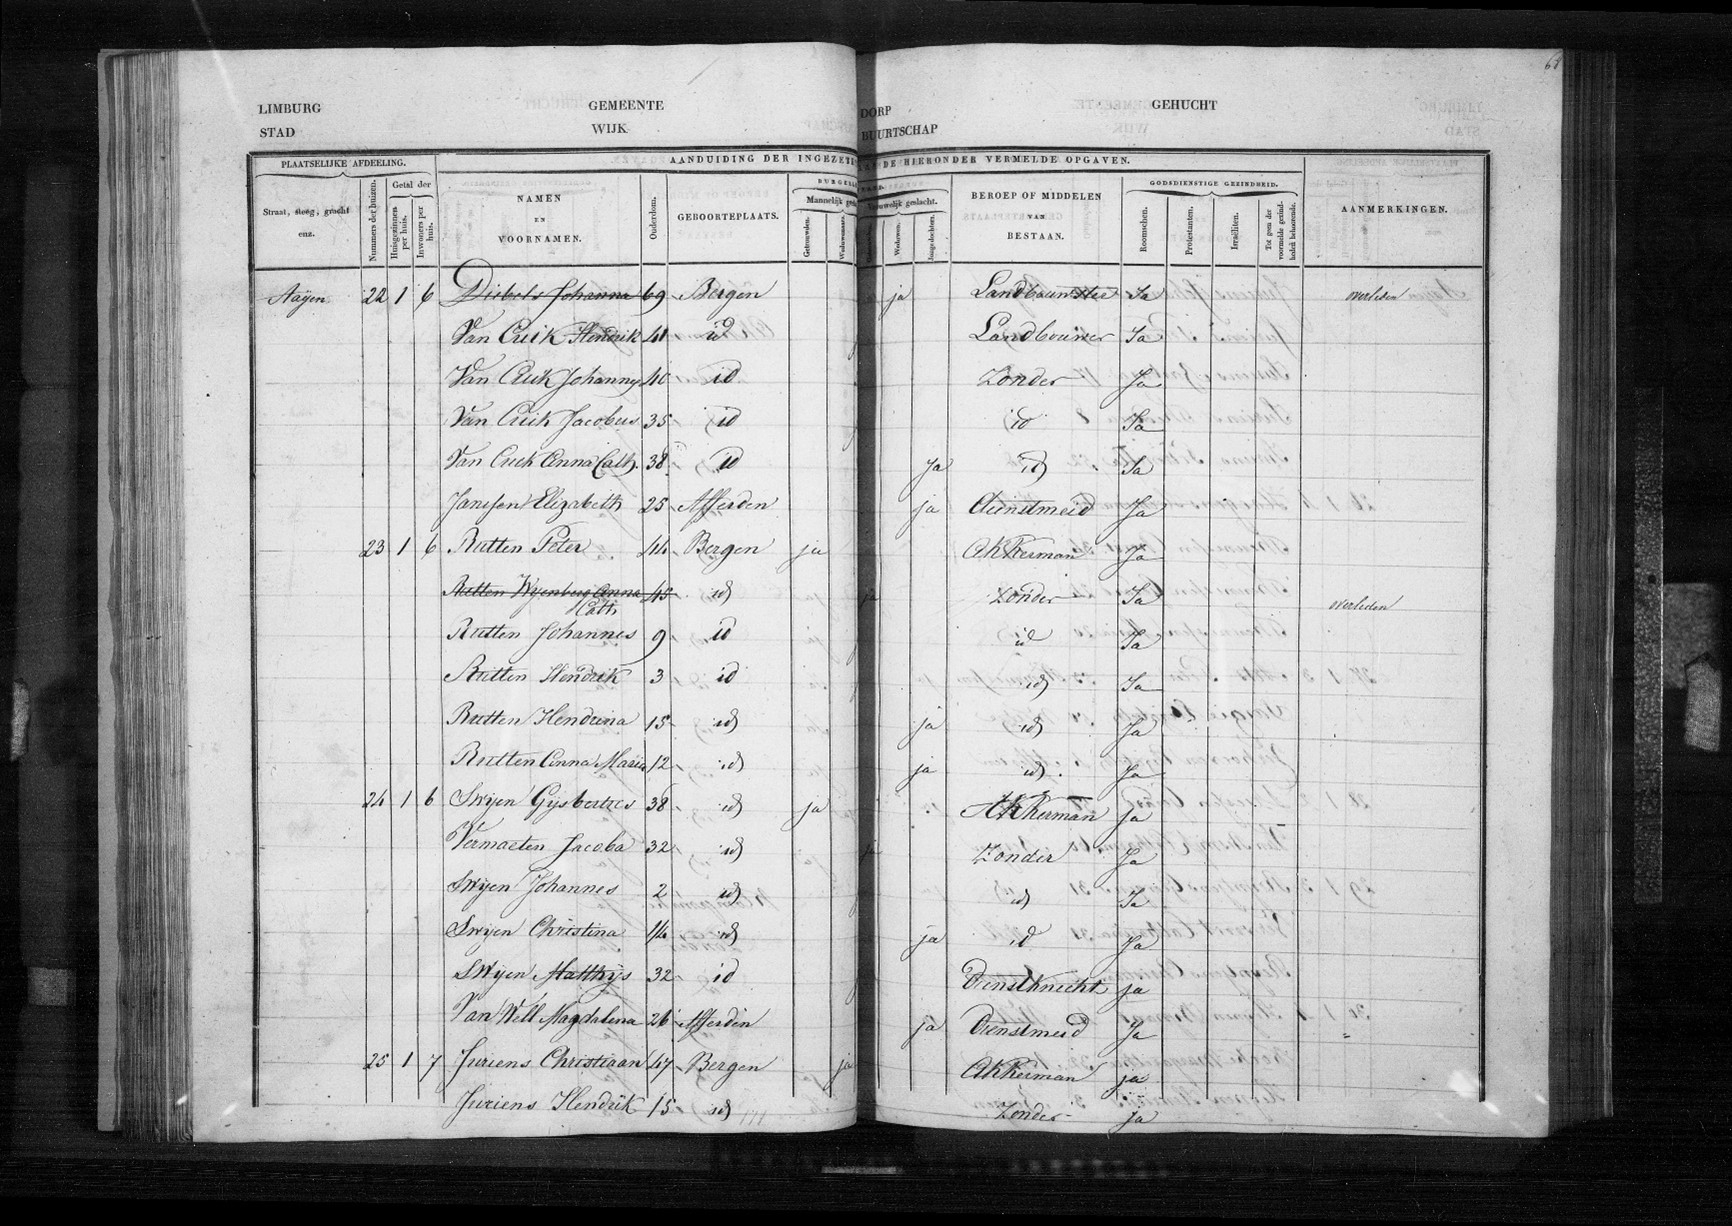 68
LIMBURG GEMEENTE DORP GEHUCHT
STAD WIJK BUURTSCHAP
PLAATSELIJKE AFDEELING. AANDUIDING DER INGEZETE DE HIERONDER VERMELDE OPGAVEN.
Straat, steeg, gracht enz. Nummers der huizen. Getal der Huisgezinnen per huis. Inwoners per huis. NAMEN EN VOORNAMEN. Ouderdom. GEBOORTEPLAATS. BURGERL Mannelijk ges Getrouwden. Weduwenaars. Vrouwelijk geslacht. Weduwen. Jongedochters. BEROEP OF MIDDELEN VAN BESTAAN. GODSDIENSTIGE GEZINDHEID. Roomschen. Protestanten. Israëliten. Tot geen der voormelde gezindheden behoorende. AANMERKINGEN.
Aayen 22 1 6 Diebels Johanna 69 Bergen ja Landbouwster Ja overleden
Van Cuik Hendrik 41 id Landbouwer Ja
Van Cuik Johannes 40 id Zonder Ja
Van Cuik Jacobus 35 id id Ja
Van Cuik Anna Cath. 38 id Ja id Ja
Janssen Elizabeth 25 Afferden ja Dienstmeid Ja
23 1 6 Rutten Peter 44 Bergen ja Akkerman Ja
Rutten Wijenberg Anna Cath 45 id ja Zonder Ja overleden
Rutten Johannes 9 id id Ja
Rutten Hendrik 3 id id Ja
Rutten Hendrina 15 id ja id Ja
Rutten Anna Maria 12 id ja id Ja
24 1 6 Swijen Gijsbertus 38 id ja Akkerman ja
Vermaeten Jacoba 32 id ja Zonder Ja
Swijen Johannes 2 id id Ja
Swijen Christina 14 id ja id Ja
Swijen Matthijs 32 id Dienstknecht ja
Van Well Magdalena 26 Afferden ja Dienstmeid Ja
25 1 7 Juriens Christiaan 47 Bergen ja Akkerman ja
Juriens Hendrik 15 id Zonder ja